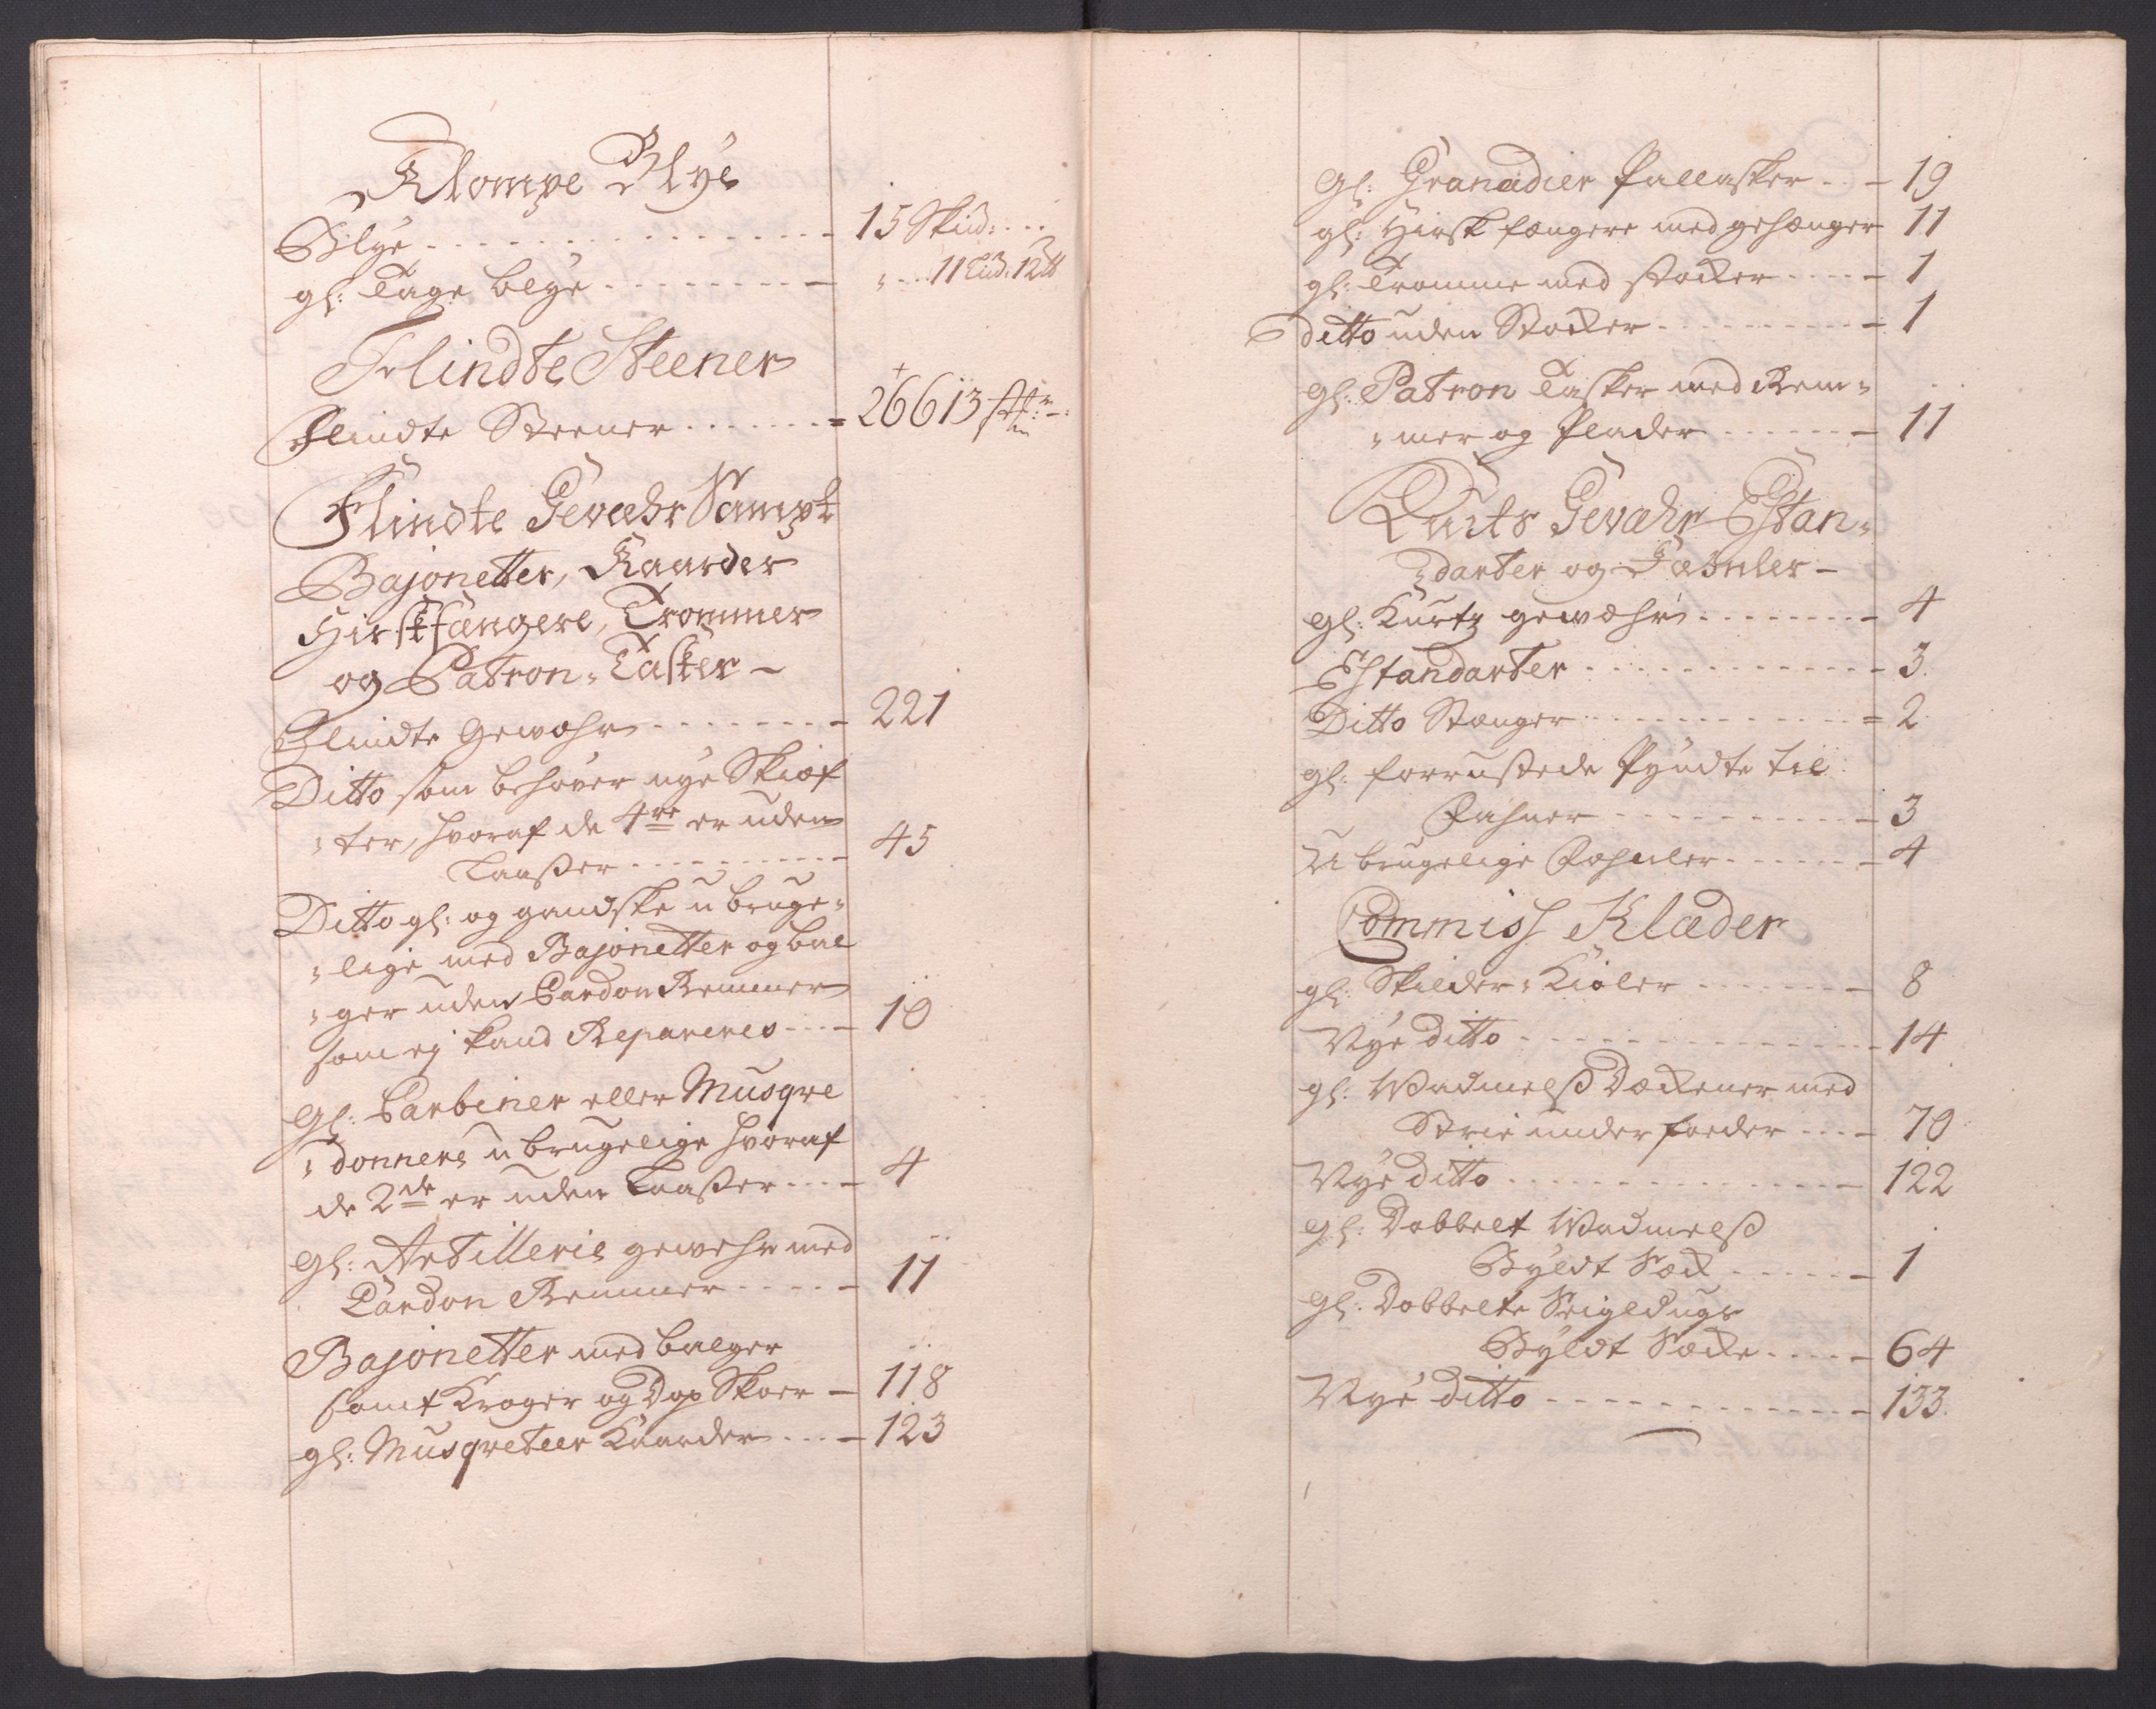 Klompe Blye
Blye - - - 15 Skud: ...
gl: Tage blye - - - " ... 11 Lisd: 12 tt
Flindte Steener
Flindte Steener - - - 26613 st:
Flindte Gevæhr Sampt
Bajonetter, Kaarder
Hirskfængere, Trommer
og Patron-Tasker -
Flindte Gewæhr - - - 221
Ditto som behöver nye Skiæf
"ter, hvoraf de 4re er uden
Laaßer - - - 45
Ditto gl: og gandske ubruge-
"lige med Bajonetter og bal
"ger uden Cardon Remmer
som ej kand Repareres - - - 10
gl: Carbiner eller Musqve
"donners ubrugelige hvoraf
de 2de er uden Laaßer - - - 4
gl: Artillerie gewehr med
Cardon Remmer - - - 11
Bajonetter med balger
samt Kroger og Dop Skoer - 118
gl: Musqveteer Kaarder - - - 123
gl: Granadier Pallasker - - - 19
gl: Hirsk fængere med gehænger 11
gl: Tromme med stocker - - - 1
ditto uden Stocker - - - 1
gl: Patron Tasker med Rem-
"mer og Plader - - - 11
Kurts Gevæhr Estan-
"darter og Fahnler -
gl: Kurtz gewæhr - - - 4
Estandarter - - - 3
Ditto Stænger - - - 2
gl: forrustede Pyndte til
Fahner - - - 3
U brugelige Fahnler - - - 4
Commiss Klæder
gl: Skilder-Kioler - - - 8
Nye ditto - - - 14
gl: Wadmelß Dækener med
Strie under foeder - - - 70
Nye ditto - - - 122
gl: Dobbelt Wadmelß
Byldt Sæck - - - 1
gl: Dobbelte Seigldugs
Byldt Sæcke - - - 64
Nye ditto - - - 133